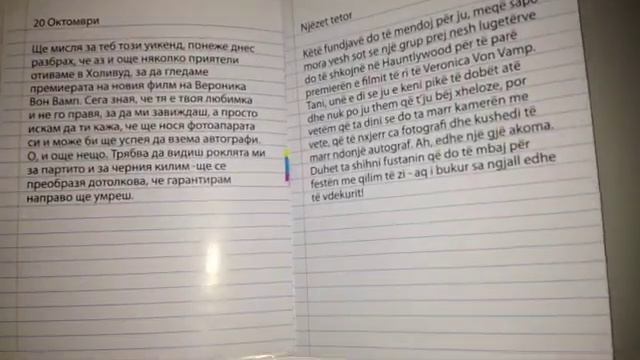 20 Октомври
Ще мисля за теб този уикенд, понеже днес
разбрах, че аз и още няколко приятели
отиваме в Холивуд, за да гледаме
премиерата на новия филм на Вероника
Вон Вамп. Сега зная, че тя е твоя любимка
и не го правя, за да ми завиждаш, а просто
искам да ти кажа, че ще нося фотоапарата
си и може би ще успея да взема автографи.
О, и още нещо. Трябва да видиш роклята ми
за партито и за черния килим -ще се
преобразя дотолкова, че гарантирам
направо ще умреш.
Njëzet tetor
Këtë fundjavë do të mendoj për ju, meqë sapo
mora vesh sot se një grup prej nesh lugetërve
do të shkojnë në Hauntlywood për të parë
premierën e filmit të ri të Veronica Von Vamp.
Tani, unë e di se ju e keni pikë të dobët atë
dhe nuk po ju them që t'ju bëj xheloze, por
vetëm që ta dini se do ta marr kamerën me
vete, që të nxjerr ca fotografi dhe kushedi të
marr ndonjë autograf. Ah, edhe një gjë akoma.
Duhet ta shihni fustanin që do të mbaj për
festën me qilim të zi - aq i bukur sa ngjall edhe
të vdekurit!